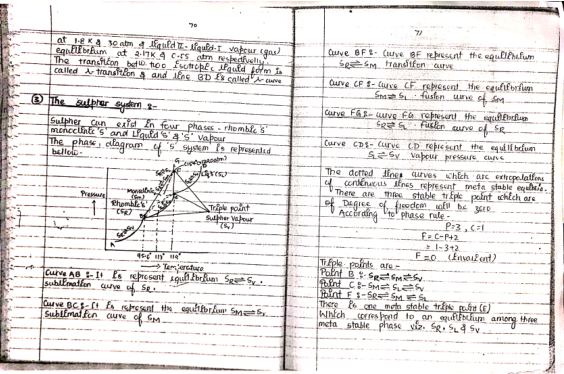 70
at 1.8 K & 30 atm & liquid II - liquid-I vapour (gas)
equilibrium at 2.17K & 0.55 atm respectively.
The transition betw. two isotropic liquid form is
called λ-transition & and line BD is called λ-curve
③ The sulpher system :-
Sulpher can exist in four phases - rhombic 's'
monoclinic 's' and liquid 's' & 's' vapour
The phase diagram of 's' system is represented
bellow.
Pressure
Rhombic 's'
(SR)
Monoclinic
(SM)
Triple point
Sulpher vapour
(Sv)
95.6° 113° 119°
→ Temperature
Curve AB :- It is represent equilibrium SR⇌Sv.
sublimation curve of SR.
Curve BC :- It is represent the equilibrium SM⇌Sv
sublimation curve of SM
71
Curve BF :- Curve BF represent the equilibrium
SR⇌SM transition curve
Curve CF :- Curve CF represent the equilibrium
SM⇌SL fusion curve of SM
Curve FG :- curve FG represent the equilibrium
SR⇌SL fusion curve of SR
Curve CD :- curve CD represent the equilibrium
SL⇌Sv vapour pressure curve
The dotted lines curves which are extrapolations
of continuous lines represent meta stable
There are three stable triple point which are
of Degree of freedom will be zero
According to phase rule -
P=3, C=1
F=C-P+2
=1-3+2
F=0 (Invarient)
Triple points are -
Point B :- SR⇌SM⇌Sv
Point C :- SM⇌SL⇌Sv
Point F :- SR⇌SM⇌SL
There is one meta stable triple point (E)
Which correspond to an equilibrium among three
meta stable phase viz. SR, SL & Sv